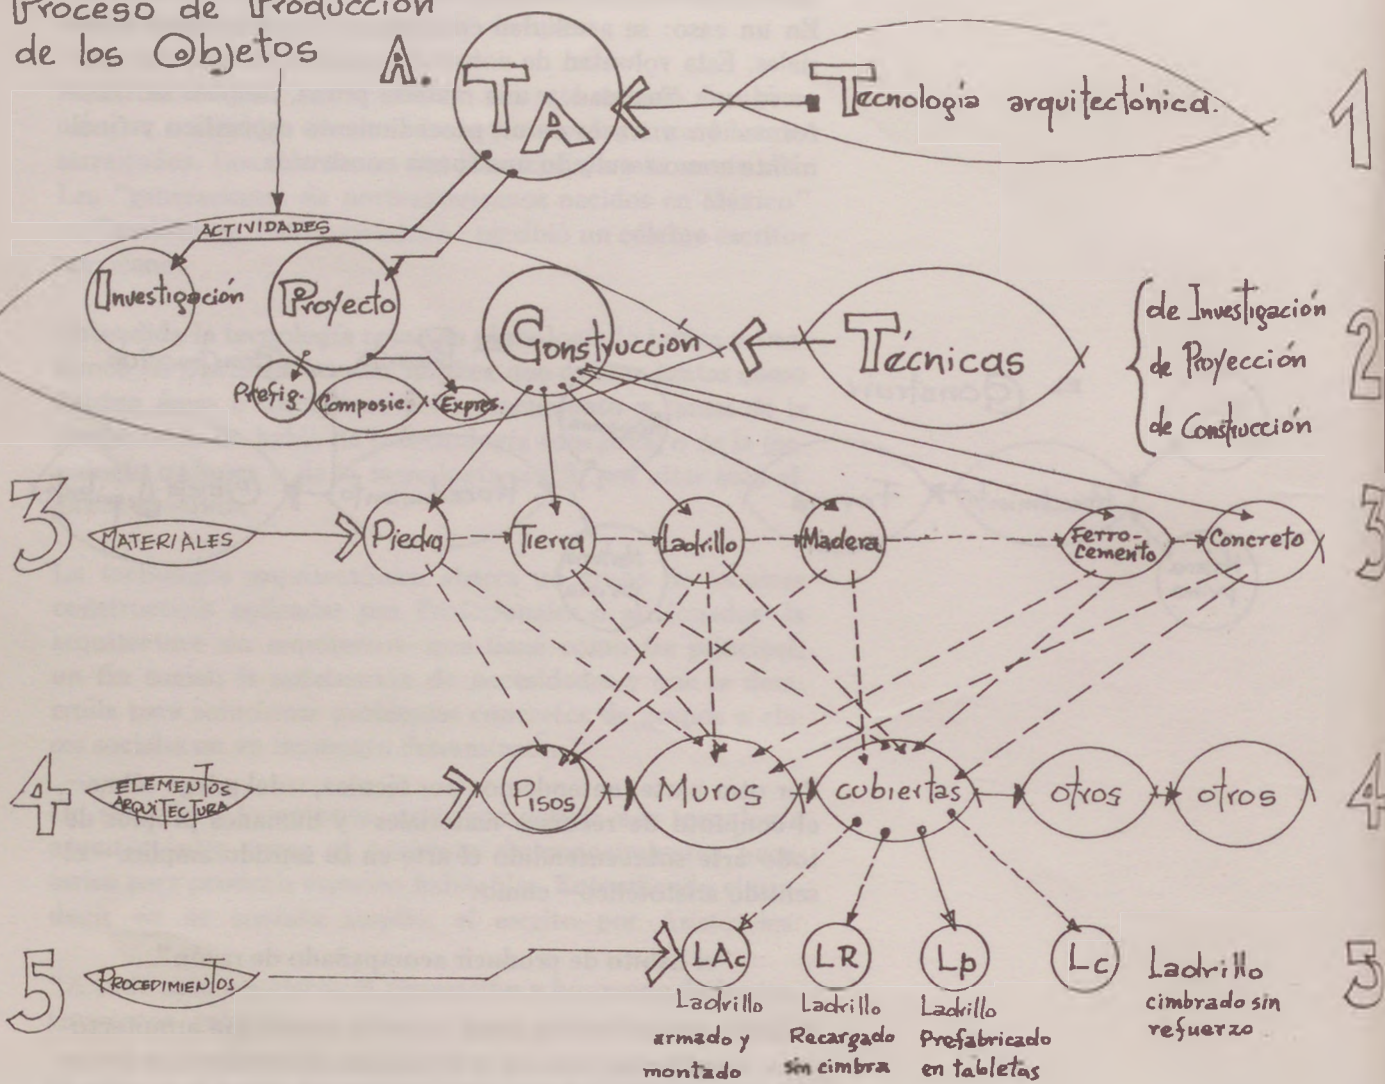 Proceso de Producción
de los Objetos
A.
TA
Tecnología arquitectónica.
1
ACTIVIDADES
Investigación
Proyecto
Construcción
Técnicas
de Investigación
de Proyección
de Construcción
2
Prefig.
Composic.
Expres.
3
MATERIALES
Piedra
Tierra
Ladrillo
Madera
Ferro-
cemento
Concreto
3
4
ELEMENTOS
ARQUITECTURA
Pisos
Muros
cubiertas
otros
otros
4
5
PROCEDIMIENTOS
LAc
LR
Lp
Lc
Ladrillo
armado y
montado
Ladrillo
Recargado
sin cimbra
Ladrillo
Prefabricado
en tabletas
Ladrillo
cimbrado sin
refuerzo
5